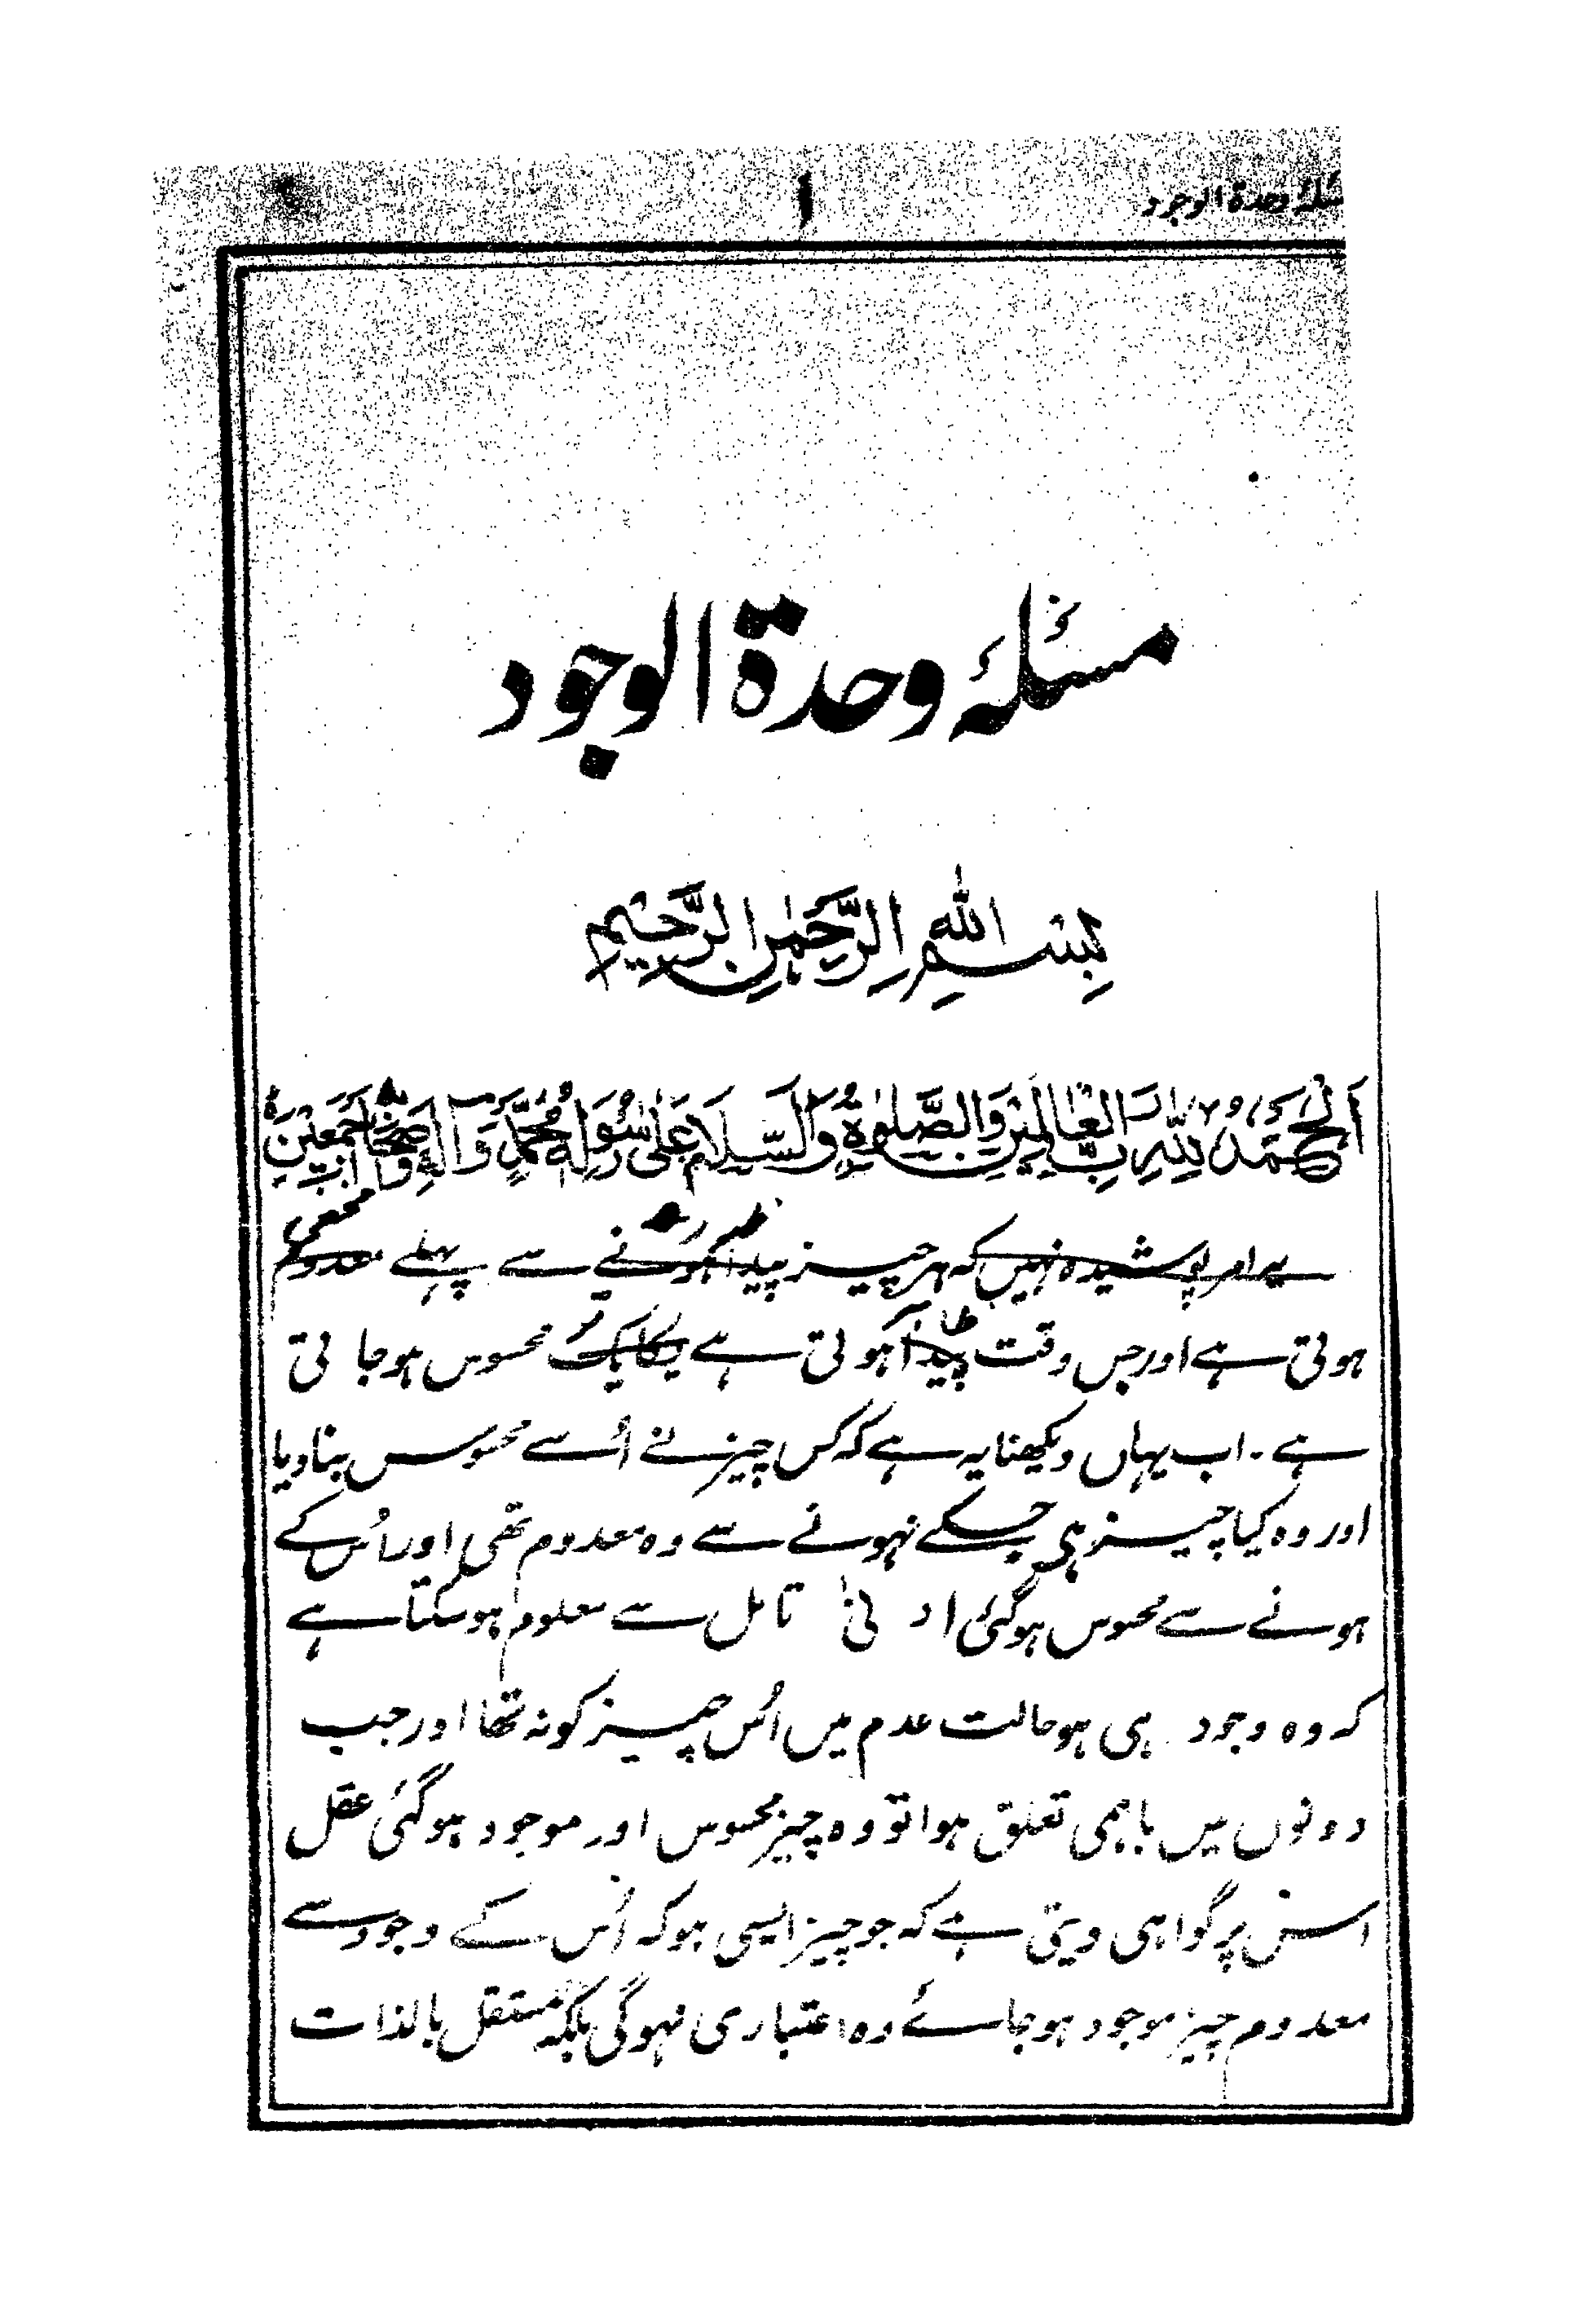 مسئلۂ وحدۃ الوجود
۱
مسئلۂ وحدۃ الوجود
بِسْمِ اللهِ الرَّحْمٰنِ الرَّحِيْمِ
اَلْحَمْدُ لِلّٰهِ رَبِّ الْعَالَمِيْنَ وَالصَّلٰوةُ وَالسَّلَامُ عَلٰى رَسُوْلِهٖ مُحَمَّدٍ وَآلِهٖ وَاَصْحَابِهٖ اَجْمَعِيْنَ
یہ امر پوشیدہ نہیں کہ ہر چیز پیدا ہونے سے پہلے معدوم
ہوتی ہے اور جس وقت پیدا ہوتی ہے یکایک محسوس ہو جاتی
ہے ۔ اب یہاں دیکھنا یہ ہے کہ کس چیز نے اُسے محسوس بنا دیا
اور وہ کیا چیز ہی جسکے نہونے سے وہ معدوم تھی اور اُس کے
ہونے سے محسوس ہو گئی ادنیٰ تامل سے معلوم ہو سکتا ہے
کہ وہ وجود ہی ہو حالت عدم میں اُس چیز کو نہ تھا اور جب
دونوں میں باہمی تعلق ہوا تو وہ چیز محسوس اور موجود ہو گئی عقل
اس پر گواہی دیتی ہے کہ جو چیز ایسی ہو کہ اُس کے وجود سے
معدوم چیز موجود ہو جائے وہ اعتباری نہوگی بلکہ مستقل بالذات